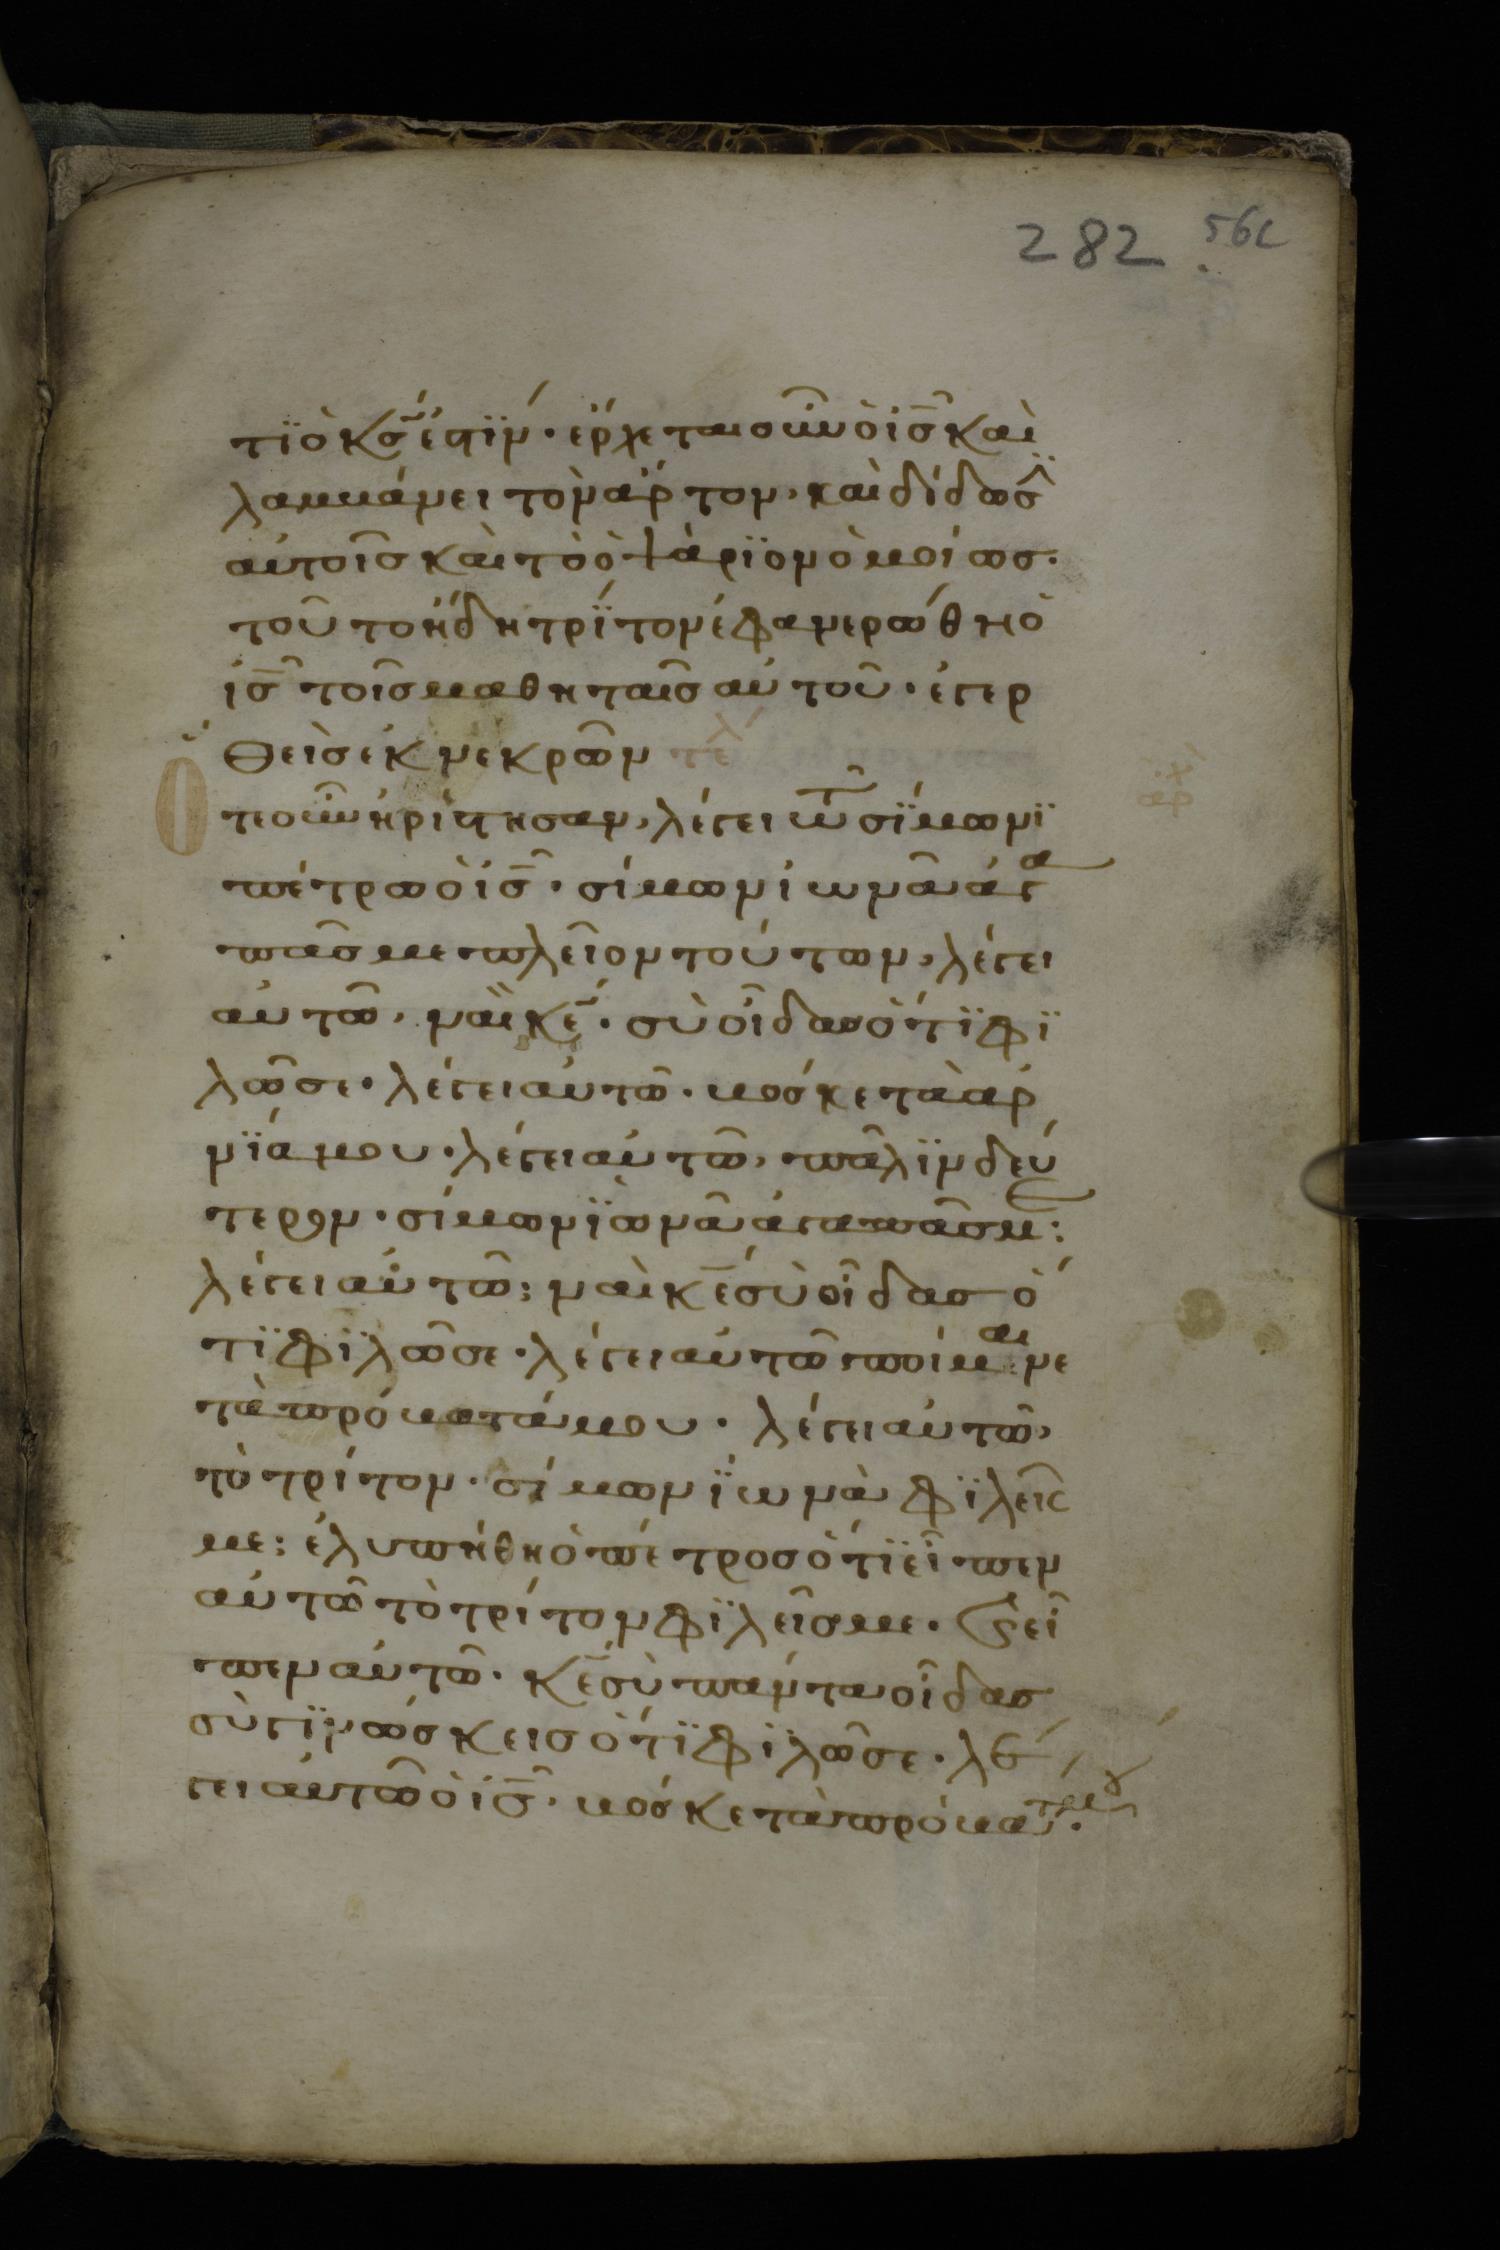 282 56
τϊ ὁ κ̅ς̅ ἐστϊν· ἔρχεται οὖν ὁ ι̅ς̅ καὶ
λαμβάνει τὸν ἄρτον, καὶ δίδωσϊ
αὐτοῖς καὶ τὸ ὀψάρϊον ὁμοίως·
τοῦτο ἤδη τρΐτον ἐφανερώθη ὁ
ι̅ς̅ τοῖς μαθηταῖς αὐτοῦ· ἐγερ
θεὶς ἐκ νεκρῶν τελ
ἀρχ
Ὅτε οὖν ἠρίστησαν, λέγει τῶ σΐμωνϊ
πέτρω ὁ ι̅ς̅· σίμων ἰωνᾶ ἀγα
πᾶς με πλεῖον τούτων, λέγει
αὐτῶ, ναὶ κ̅ε̅· σὺ οἶδας ὅτϊ φϊ
λῶ σε· λέγει αὐτῶ· βόσκε τὰ ἀρ
νΐα μου· λέγει αὐτῶ, πάλϊν δεύ
τερον· σίμων ϊωνᾶ ἀγαπᾶς με;
λέγει αὐτῶ; ναὶ κ̅ε̅ σὺ οἶδας ὅ
τϊ φϊλῶ σε· λέγει αὐτῶ ποίμαινε
τὰ πρόβατά μου· λέγει αὐτῶ,
τὸ τρίτον· σίμων ϊωνὰ φϊλεῖς
με; ἐλυπήθη ὁ πέτρος ὅτϊ εἶπεν
αὐτῶ τὸ τρίτον φϊλεῖς με· ϗ εἶ
πεν αὐτῶ· κ̅ε̅ σὺ πάντα οἶδας
σὺ γϊνώσκεις ὅτϊ φϊλῶ σε· λέ
γει αὐτῶ ὁ ι̅ς̅· βόσκε τὰ πρόβατά μου·